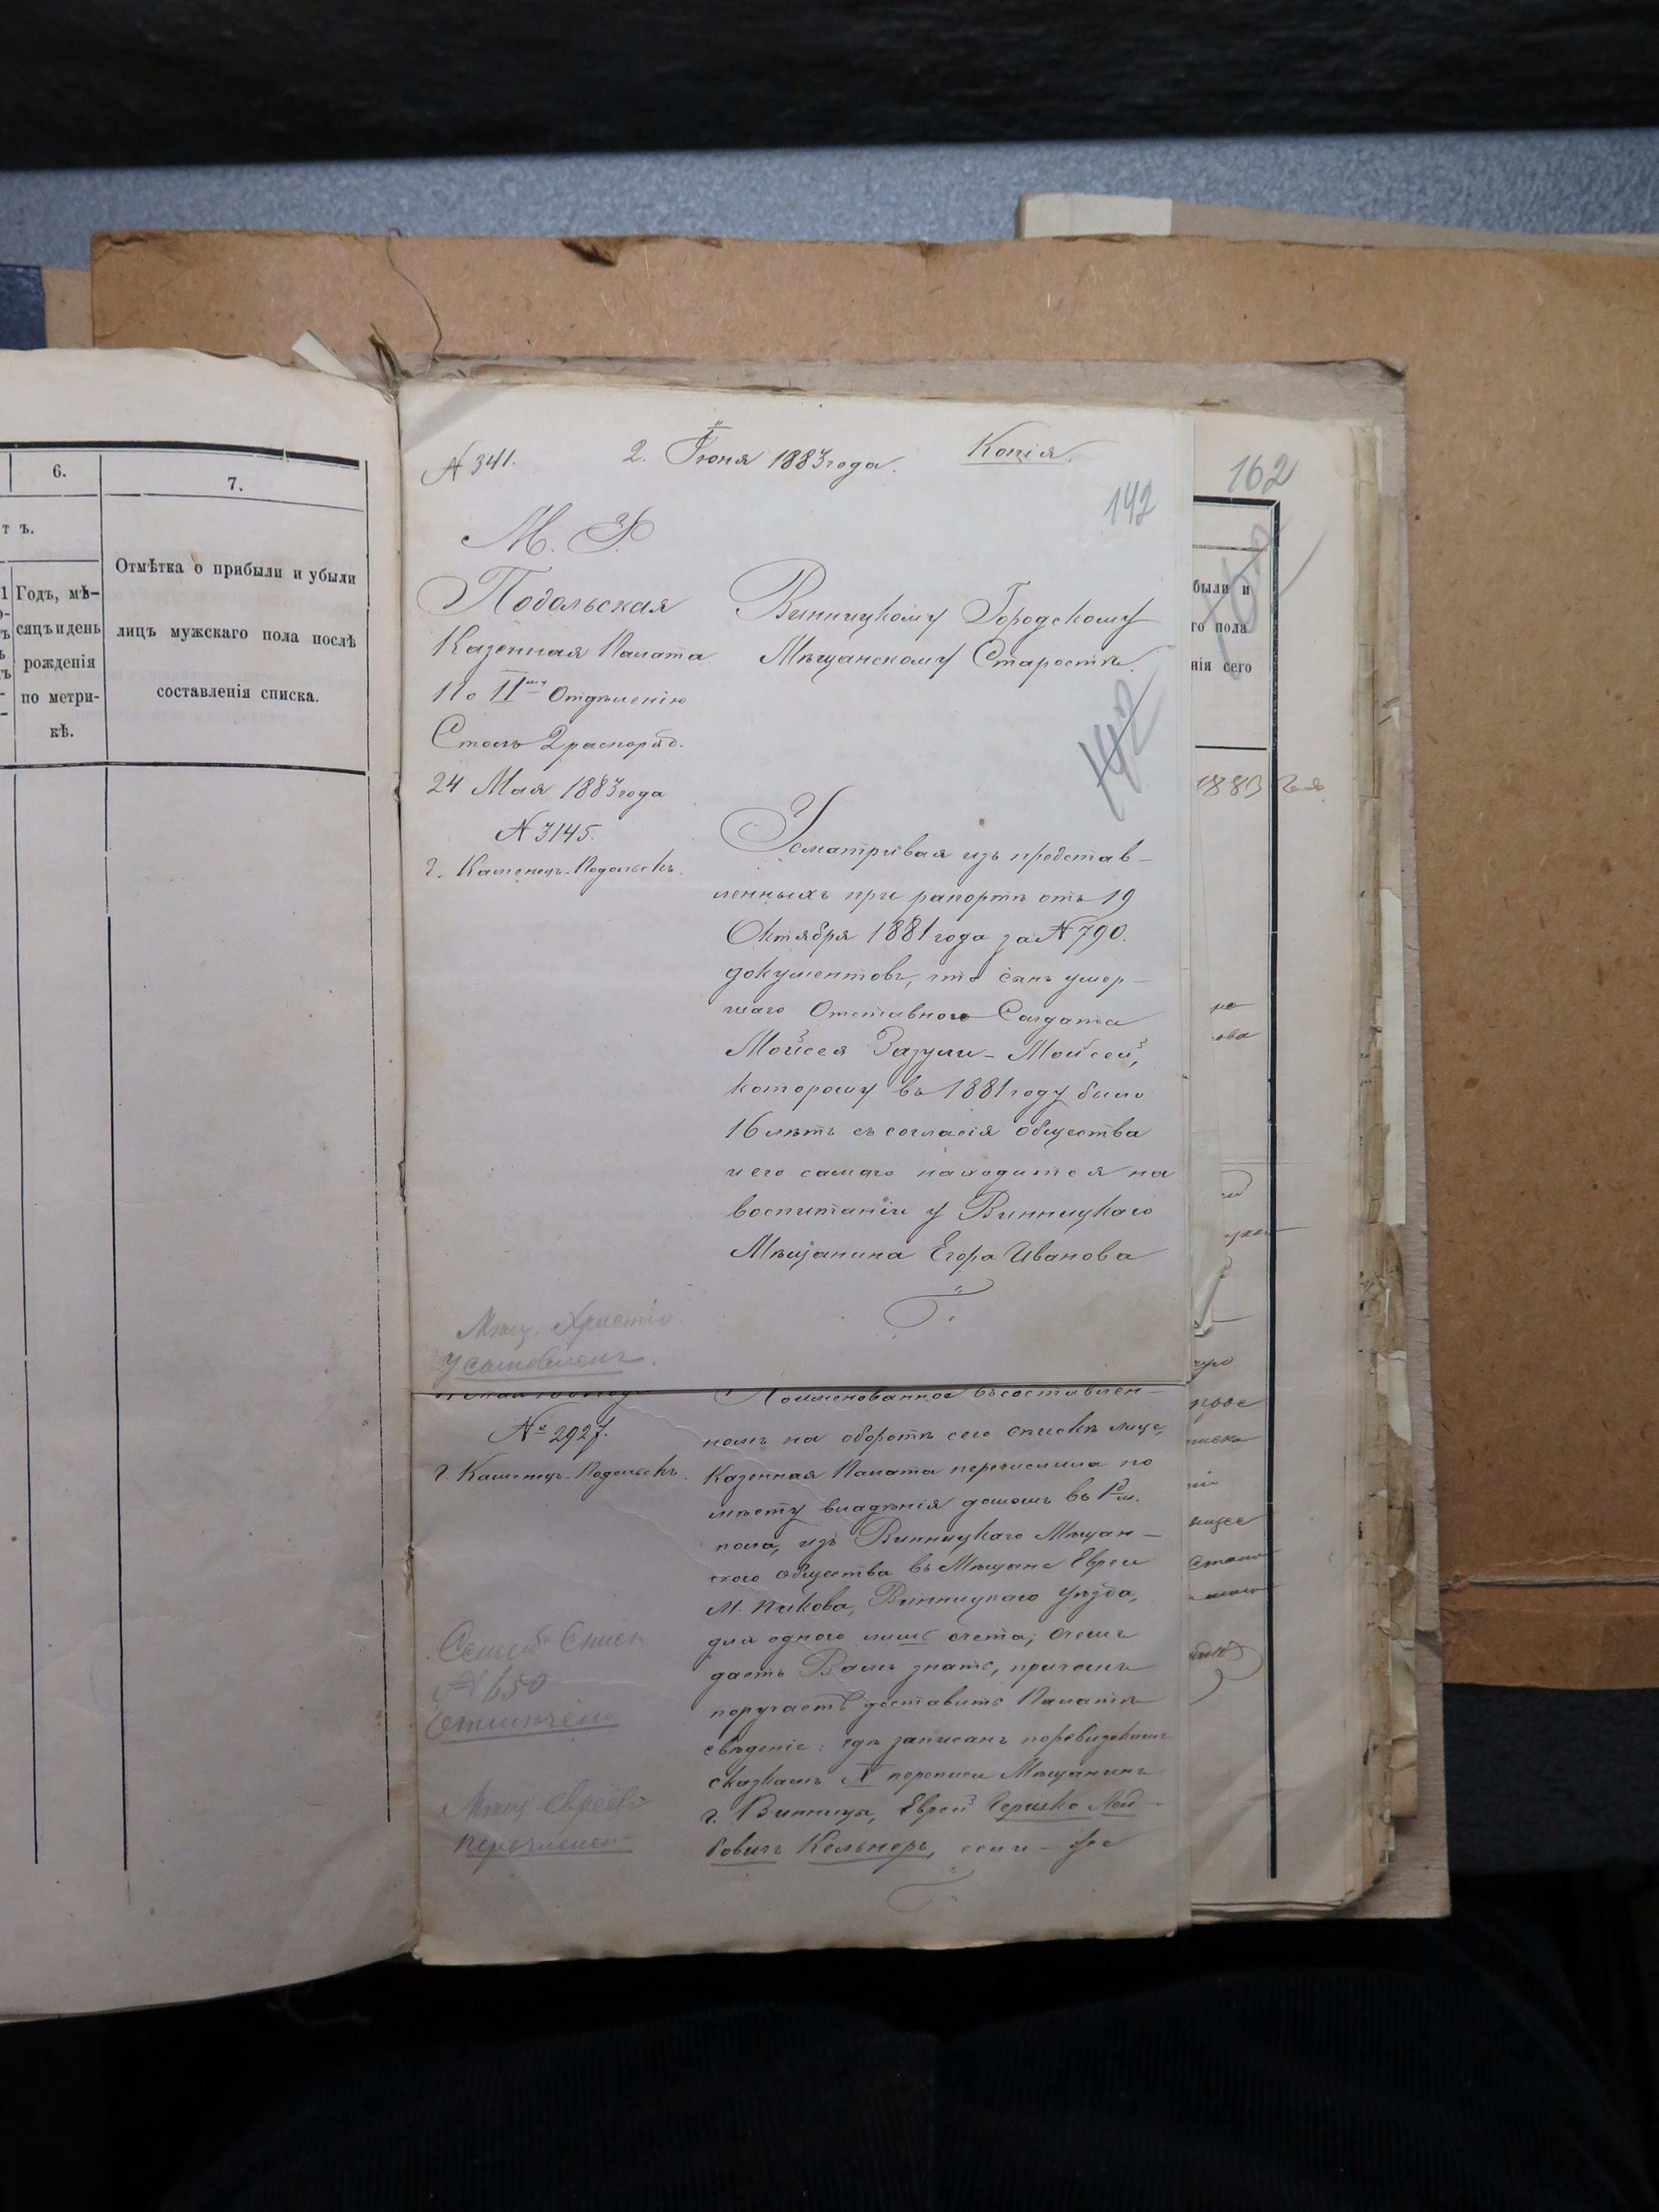 6.
7.
т ъ.
Годъ, мѣ-
сяцъ и день
рожденія
по метри-
кѣ.
Отмѣтка о прибыли и убыли
лицъ мужскаго пола послѣ
составленія списка.
N 341.
2. Іюня 1883 года.
Копія.
142
162
М. Ф.
Подольская
Казенная Палата
По II Отдѣленію
Столъ 2 распоряд.
24 Мая 1883 года
N 3145.
г. Каменецъ-Подольскъ.
Винницкому Городскому
Мѣщанскому Старостѣ.
142
Усматривая изъ представ-
ленныхъ при рапортѣ отъ 19
Октября 1881 года за N 790.
документовъ, что сынъ умер-
шаго Отставного Солдата
Мойсея Зазули - Мойсей,
которому въ 1881 году было
16 лѣтъ съ согласія общества
и его самаго находится на
воспитаніи у Винницкаго
Мѣщанина Егора Иванова
Мѣщ. Христіа.
усыновленъ.
Поименованное въ составлен-
номъ на оборотѣ сего спискѣ лице,
Казенная Палата перечислила по
мѣсту владѣнія домомъ въ
пола, изъ Винницкаго Мѣщан-
скаго общества въ Мѣщане Евреи
М. Пикова, Винницкаго Уѣзда,
для одного лишь счета; о чемъ
даетъ Вамъ знать, причемъ
поручаетъ доставить Палатѣ
свѣденіе: гдѣ записанъ по ревизскимъ
сказкамъ X переписи Мѣщанинъ
г. Винницы, Еврей Гершко Лей-
бовичъ Кельнеръ, если - же
№ 2927.
г. Каменецъ-Подольскъ.
Семей. Списк.
№ 650
Отмѣчено
Мѣщ. Евреевъ
перечислен
были и
го пола
нія сего
1883 года